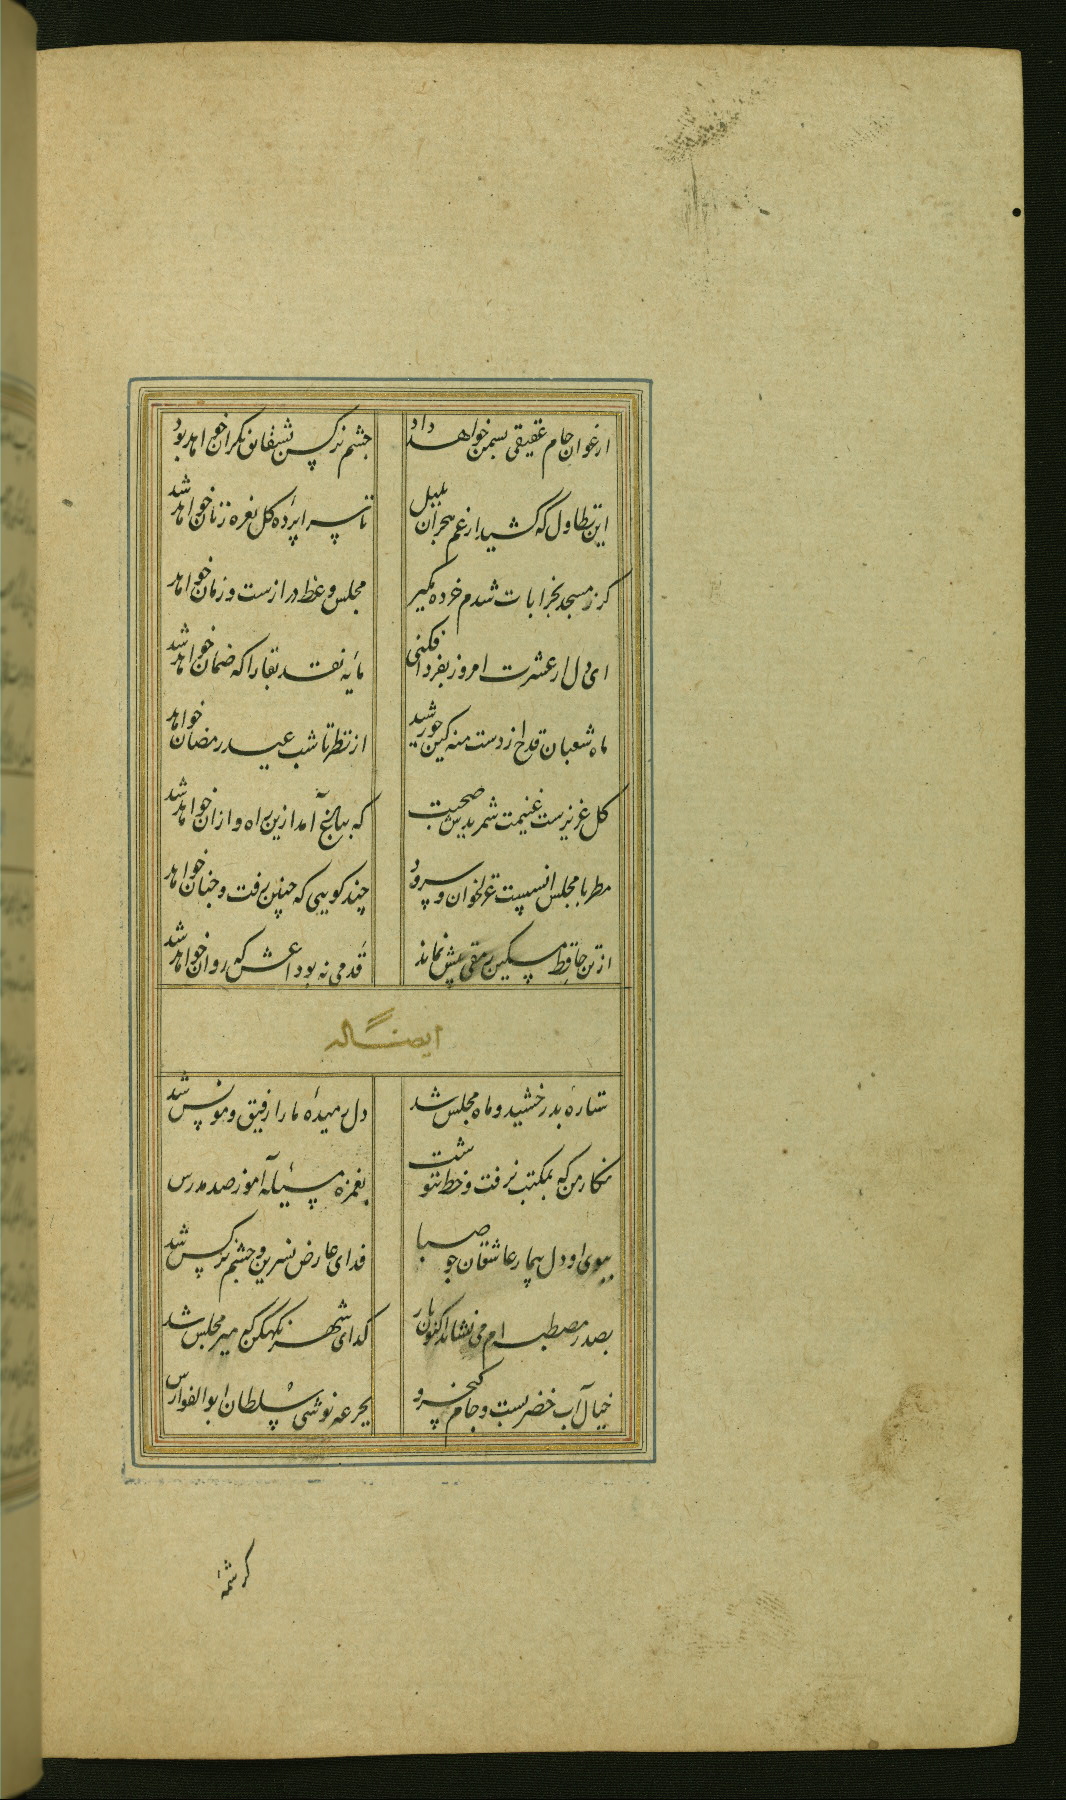 ارغوان جام عقیقی بسمن خواهد داد
چشم نرکس بشقایق نکران خواهد بود
این تطاول که کشید از غم هجران بلبل
تا سراپرده کل نعره زنان خواهد شد
کر ز مسجد بخرابات شدم خرده مکیر
مجلس وعظ درازست و زمان خواهد
ای دل ار عشرت امروز بفردا فکنی
مایه نقد بقا را که ضمان خواهد شد
ماه شعبان قدح از دست منه کین خورشید
از نظر تا شب عید رمضان خواهد
کل عزیزست غنیمت شمریدش صحبت
که بباغ آمد ازین راه و ازان خواهد شد
مطربا مجلس انسست غزلخوان و سرود
چند کویی که چنین رفت و چنان خواهد
از تن حافظ مسکین رمقی بیش نماند
قدمی نه بوداعش که روان خواهد شد
ایضا له
ستاره بدرخشید و ماه مجلس شد
دل رمیده ما را رفیق و مونس شد
نکار من که بمکتب نرفت و خط ننوشت
بغمزه مسئله آموز صد مدرس
ببوی او دل بیمار عاشقان چو صبا
فدای عارض نسرین و چشم نرکس شد
بصدر مصطبه ام می نشاند اکنون یار
کدای شهر نکه کن که میر مجلس شد
خیال آب خضر بست و جام کیخسرو
بجرعه نوشی سلطان ابوالفوارس
کرشمه